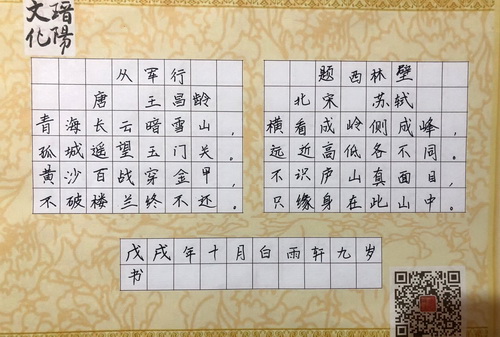 文化
暗陽
从军行
唐 王昌龄
青海长云暗雪山，
孤城遥望玉门关。
黄沙百战穿金甲，
不破楼兰终不还。
题西林壁
北宋 苏轼
横看成岭侧成峰，
远近高低各不同。
不识庐山真面目，
只缘身在此山中。
戊戌年十月白雨轩九岁
书